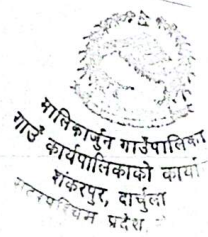 मालिकार्जुन गाउँपालिका
गाउँ कार्यपालिकाको कार्या
शंकरपुर, दार्चुला
प्रदेश,